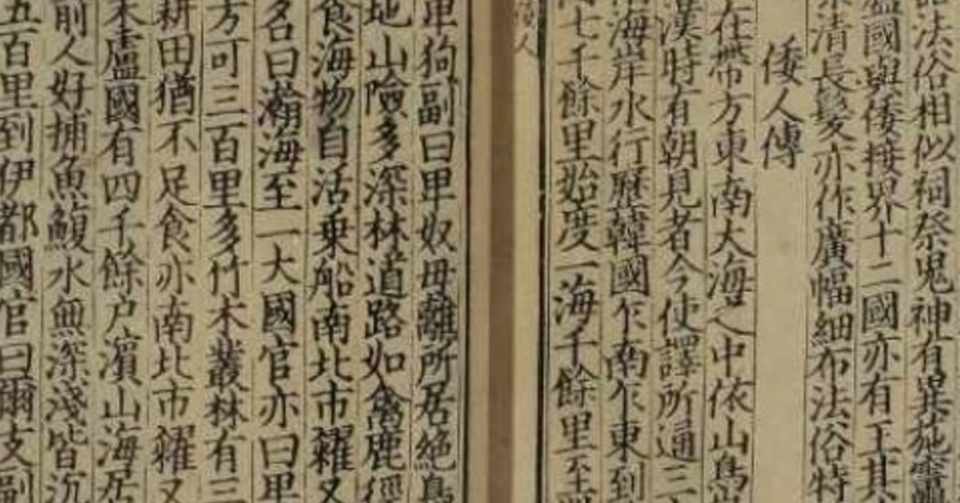 法俗相似祠祭鬼神有異施竈
盧國與倭接界十二國亦有王其
清長髮亦作廣幅細布法俗特
倭人傳
在帶方東南大海之中依山島
漢時有朝見者今使譯所通三
海岸水行歷韓國乍南乍東到
七千餘里始度一海千餘里至
人
卑狗副曰卑奴母離所居絶島
地山險多深林道路如禽鹿徑
食海物自活乗船南北市糴又
名曰瀚海至一大國官亦曰卑
方可三百里多竹木叢林有三
耕田猶不足食亦南北市糴又
末盧國有四千餘户濱山海居
前人好捕魚鰒水無深淺皆沉
五百里到伊都國官曰爾支副